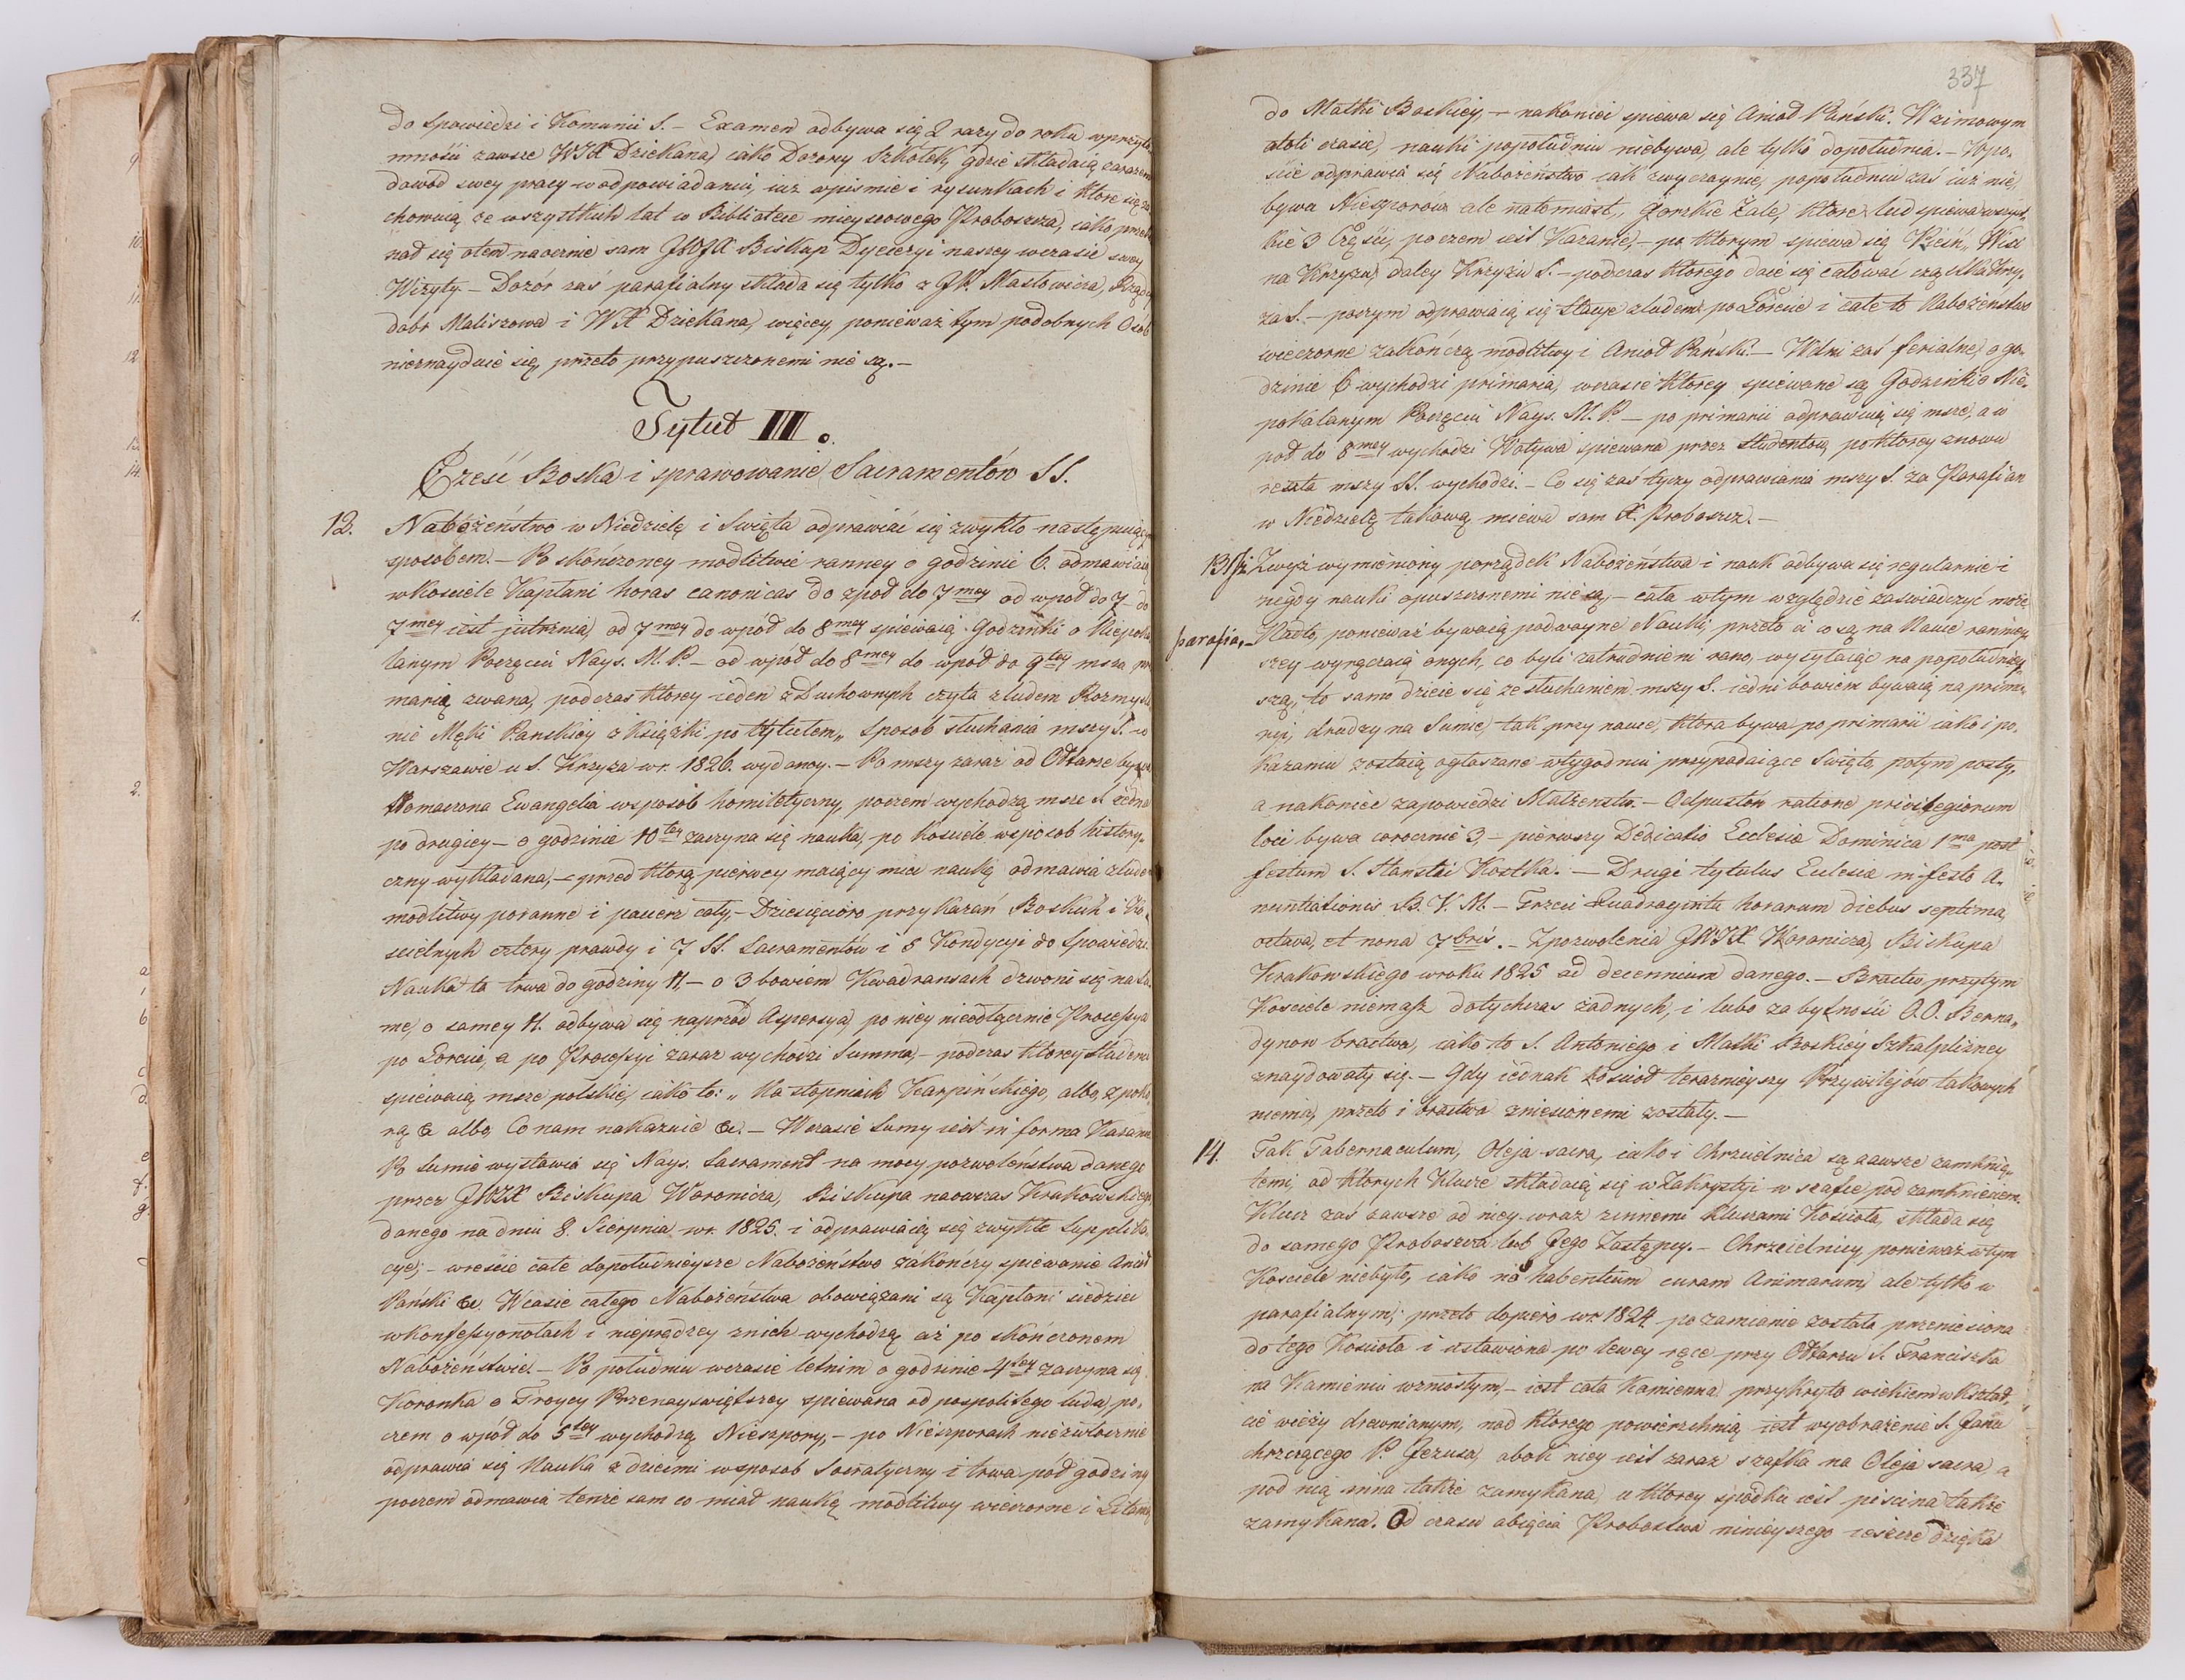 do Spowiedzi i Komunii S. – Examen odbywa się 2 razy do roku wprzyto-
mności zawsze WJX Dziekana, iako Dozory Szkółek, gdzie składaią zarazem
dowód swey pracy w odpowiadaniu, iuż wpismie i rysunkach i które się za
chowuią ze wszystkich lat w Bibliotece mieyscowego Proboszcza, iako przeko
nał się otem naocznie sam JWJX Biskup Dyecezyi naszey wczasie swey
Wizyty. – Dozór zaś parafialny składa się tylko z JP. Masłowicza, Rządcy
dobr Maliszowa i WX Dziekana, więcey ponieważ tym podobnych Osób
nieznayduie się, przeto przypuszczonemi nie są. –
Tytuł III.
Cześć Boska i sprawowanie Sacramentów SS.
12. Nabożeństwo w Niedzielę i Swięta odprawiać się zwykło następuiącym
sposobem. – Po skończoney modlitwie ranney o godzinie 6. odmawiaią
wkościele Kapłani horas canonicas do wpoł do 7mey od wpoł do 7– do
7mey iest jutrznia, od 7mey do wpół do 8mey spiewaią Godzinki o Niepoka
lanym Poczęciu Nays. M. P. – od wpół do 8mey do wpół do 9tey msza, pry
marią zwana, podczas ktorey ieden z Duchownych czyta zludem Rozmysla
nie Męki Panskiey z Książki po tytułem „ Sposób słuchania mszy S. w
Warszawie u S. Krzyża w r. 1826. wydaney. – Po mszy zaraz od Ołtarza bywa
tłomaczona Ewangelia wsposób homiletyczny, poczem wychodzą msze S. iedna
po drugiey – o godzinie 10tey zaczyna się nauka, po kościele wsposob history-
czny wykładana, – przed którą pierwey maiący mieć naukę odmawia zludem
modlitwy poranne i pacierz cały – Dziesięcioro przykazań Boskich i Ko-
ścielnych cztery prawdy i 7 SS. Sacramentów i 5 Kondycyi do Spowiedzi.
Nauka ta trwa do godziny 11. – o 3 bowiem Kwadransach dzwoni się na Su-
mę, o samey 11. odbywa się naprzód Aspersya, po niey nieodłącznie Processya
po Lorecie, a po Processyi zaraz wychodzi Summa, – podczas ktorey Studenci
spiewaią msze polskie, iako to: „ Na stopniach Karpińskiego, albo, z poko
rą & albo, Co nam nakazuie &c. – Wczasie Sumy iest in forma Kazanie
Po Sumie wystawia się Nays. Sacrament na mocy pozwoleństwa danego
przez JWJX Biskupa Woronicza, Biskupa naówczas Krakowskiego,
danego na dniu 8. Sierpnia w r. 1825. i odprawiaią się zwykłe Supplika
cye, – wreście całe dopołudnieysze Nabożeństwo zakończy spiewanie Anioł
Pański &c. Wczasie całego Nabożeństwa obowiązani są Kapłani siedzieć
wkonfessyonałach i nieprędzey znich wychodzą aż po skończonem
Nabożeństwie. – Po południu wczasie letnim o godzinie 4tey zaczyna się
Koronka o Troycy Przenayswiętszey spiewana od pospolitego ludu, po-
czem o wpół do 5tey wychodzą Nieszpory, – po Nieszporach niezwłocznie
odprawia się Nauka z dziećmi wsposob Sokratyczny i trwa pół godziny
poczem odmawia tenże sam co miał naukę modlitwy wieczorne i Litanią
337
do Matki Boskiéy, – nakoniec spiewa się Anioł Pański. Wzimowym
atoli czasie, nauki popołudniu niebywa, ale tylko dopołudnia. – Wpo-
ście odprawia się Nabożeństwo iak zwyczaynie, popołudniu zaś iuż nie,
bywa Nieszporów ale natomiast, Gorzkie Żale, ktore lud spiewa wszyst-
kie 3 Części, poczem iest Kazanie, – po ktorym spiewa się Pieśń „ Wisi
na Krzyżu, daley Krzyżu S. – podczas ktorego daie się całować cząstka Krzy-
ża S. – poczym odprawiaią się stacye zludem po Lorecie i całe to Nabożeństwo
wieczorne zakończą modlitwy i Anioł Pański. – Wdni zaś ferialne, o go-
dzinie 6 wychodzi primaria, wczasie ktorey spiewane są Godzinki o Nie-
pokalanym Poczęciu Nays. M. P. – po primarii odprawuią się msze, a w
poł do 8mey wychodzi Wotywa spiewana przez Studentow, po ktorey znowu
reszta mszy SS. wychodzi. – Co się zaś tyczy odprawiania mszy S. za Parafian
w Niedzielę takową miewa sam X. Proboszcz. –
13. Zwyż wymieniony porządek Nabożeństwa i nauk odbywa się regularnie i
nigdy nauki opuszczonemi nie są, – cała wtym względzie zaswiadczyć może
parafia, – Nadto, ponieważ bywaią podwoyne Nauki, przeto ci co są na Nauce ranniey-
szey wyręczaią onych, co byli zatrudnieni rano, wysyłaiąc na popołudniey-
szą, to samo dzieie się ze słuchaniem mszy S. iedni bowiem bywaią na prima-
ryi, drudzy na Sumie, tak przy nauce, ktora bywa po primarii iako i po-
kazaniu zostaią ogłaszane wtygodniu przypadaiące Swięta, potym posty,
a nakoniec zapowiedzi Małżenstw. – Odpustów ratione privilegiorum
loci bywa corocznie 3, – pierwszy Dedicatio Ecclesiæ Dominica 1ma post
festum S. Stanslai Kostka. – Drugi tytulus Eclesiæ in festo A-
nuntiationis B. V. M. – Trzeci Quadraginta horarum diebus septima,
octava, et nona 7bris. – Zpozwolenia JWJX Woronicza, Biskupa
Krakowskiego wroku 1825 ad decennium danego. – Bractw przytym
Kosciele niemasz dotychczas żadnych, i lubo za bytności O.O. Berna-
dynow bractwa, iako to S. Antoniego i Matki Boskiéy Szkalpliżney
znaydowały się. – Gdy iednak kościoł terazniéyszy Przywilejów takowych
niema, przeto i bractwa zniesionemi zostały. –
14. Tak Tabernaculum, Oleja sacra, iako i Chrzcielnica są zawsze zamknię-
temi, od ktorych Klucze składaią się w Zakrystyi w szafie pod zamknieciem.
Klucz zaś zawsze od niey wraz zinnemi Kluczami Kościoła, składa się
do samego Proboszcza lub Jego Zastępcy. – Chrzcielnicy, ponieważ wtym
Kosciele niebyło, iako no habentium curam Animarum, ale tylko w
parafialnym, przeto dopiero w r. 1824 po zamianie została przeniesiona
do tego Kościoła i ustawiona po lewey ręce przy Ołtarzu S. Franciszka
na Kamieniu wzniosłym, – iest cała kamienna, przykryta wiekiem w kształ-
cie wieży drewnianym, nad ktorego powierzchnią iest wyobrażenie S. Jana
chrzcącego P. Jezusa, obok niey iest zaraz szafka na Oleja sacra, a
pod nią inna także zamykana, u ktorey spodku iest piscina także
zamykana. Od czasu obięcia Probostwa ninieyszego ieszcze dzięka